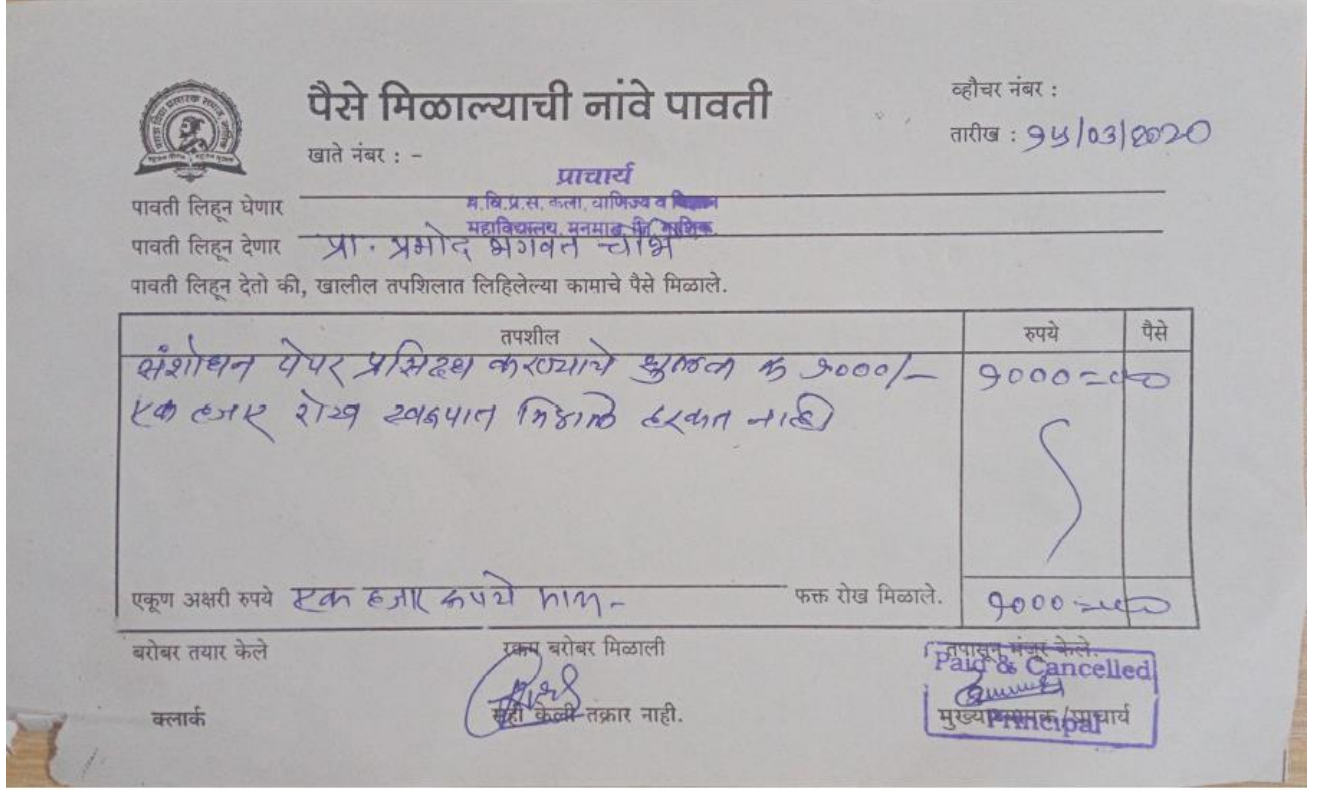 पैसे मिळाल्याची नांवे पावती
व्हौचर नंबर :
तारीख : १५/०३/२०२०
खाते नंबर : -
प्राचार्य
पावती लिहून घेणार म.वि.प्र.स. कला, वाणिज्य व विज्ञान
महाविद्यालय, मनमाड जि. नाशिक
पावती लिहून देणार प्रा. प्रमोद भगवंत
पावती लिहून देतो की, खालील तपशिलात लिहिलेल्या कामाचे पैसे मिळाले.
तपशील रुपये पैसे
संशोधन पेपर प्रसिद्ध करण्याचे शुल्क रु १०००/- १०००=००
एक हजार रोख स्वरुपात मिळाले हरकत नाही
एकूण अक्षरी रुपये एक हजार रुपये मात्र- फक्त रोख मिळाले. १०००=००
बरोबर तयार केले रक्कम बरोबर मिळाली तपासून मंजूर केले.
Paid & Cancelled
क्लार्क सही केली तक्रार नाही. मुख्याध्यापक/प्राचार्य
Principal